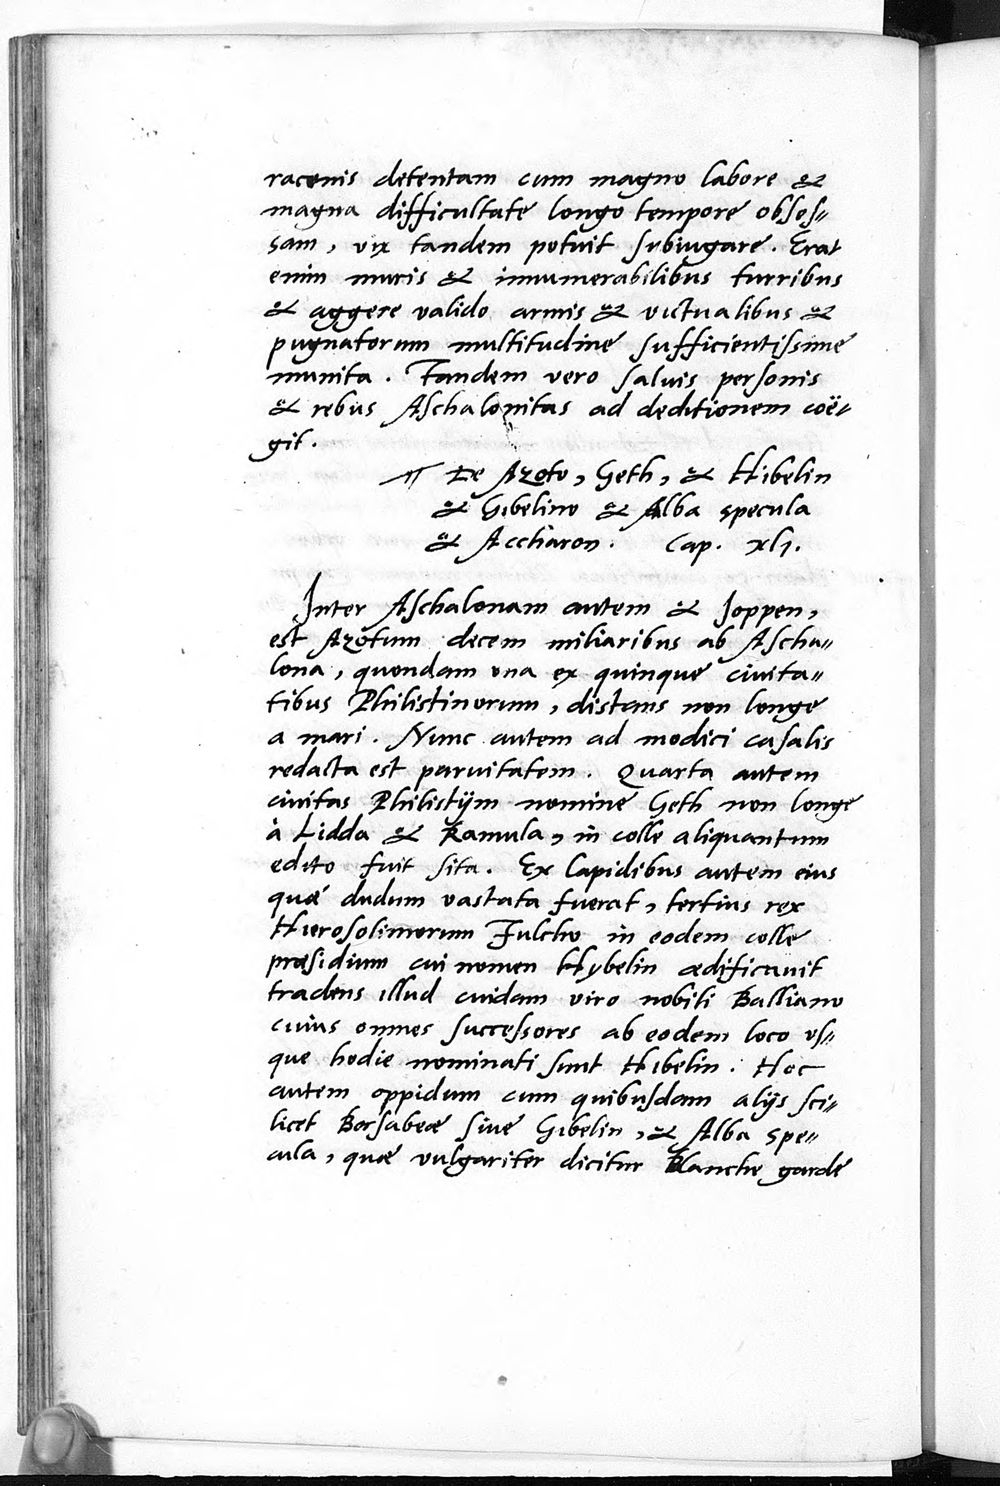 racenis detentam cum magno labore &
magna difficultate longo tempore obses=
sam, vix tandem potuit subiugare. Erat
enim muris & innumerabilibus turribus
& aggere valido armis & victualibus &
pugnatorum multitudine sufficientissime
munita. Tandem vero saluis personis
& rebus Aschalonitas ad deditionem coë=
git.
¶ De Azoto, Geth, & Hibelin
& Gibelino & Alba specula
& Accharon. Cap. xlj.
Inter Aschalonam autem & Joppen,
est Azotum decem miliaribus ab Ascha=
lona, quondam vna ex quinque ciuita=
tibus Philistinorum, distans non longe
a mari. Nunc autem ad modici casalis
redacta est paruitatem. Quarta autem
ciuitas Philistijm nomine Geth non longe
à Lidda & Ramula, in colle aliquantum
edito fuit sita. Ex lapidibus autem eius
quæ dudum vastata fuerat, tertius rex
Hierosolimorum Fulcho in eodem colle
præsidium cui nomen Hybelin ædificauit
tradens illud cuidam viro nobili Balliano
cuius omnes successores ab eodem loco vs=
que hodie nominati sunt Hibelin. Hoc
autem oppidum cum quibusdam alijs sci=
licet Barsabeæ siue Gibelin, & Alba spe=
cula, quæ vulgariter dicitur Blanche garde